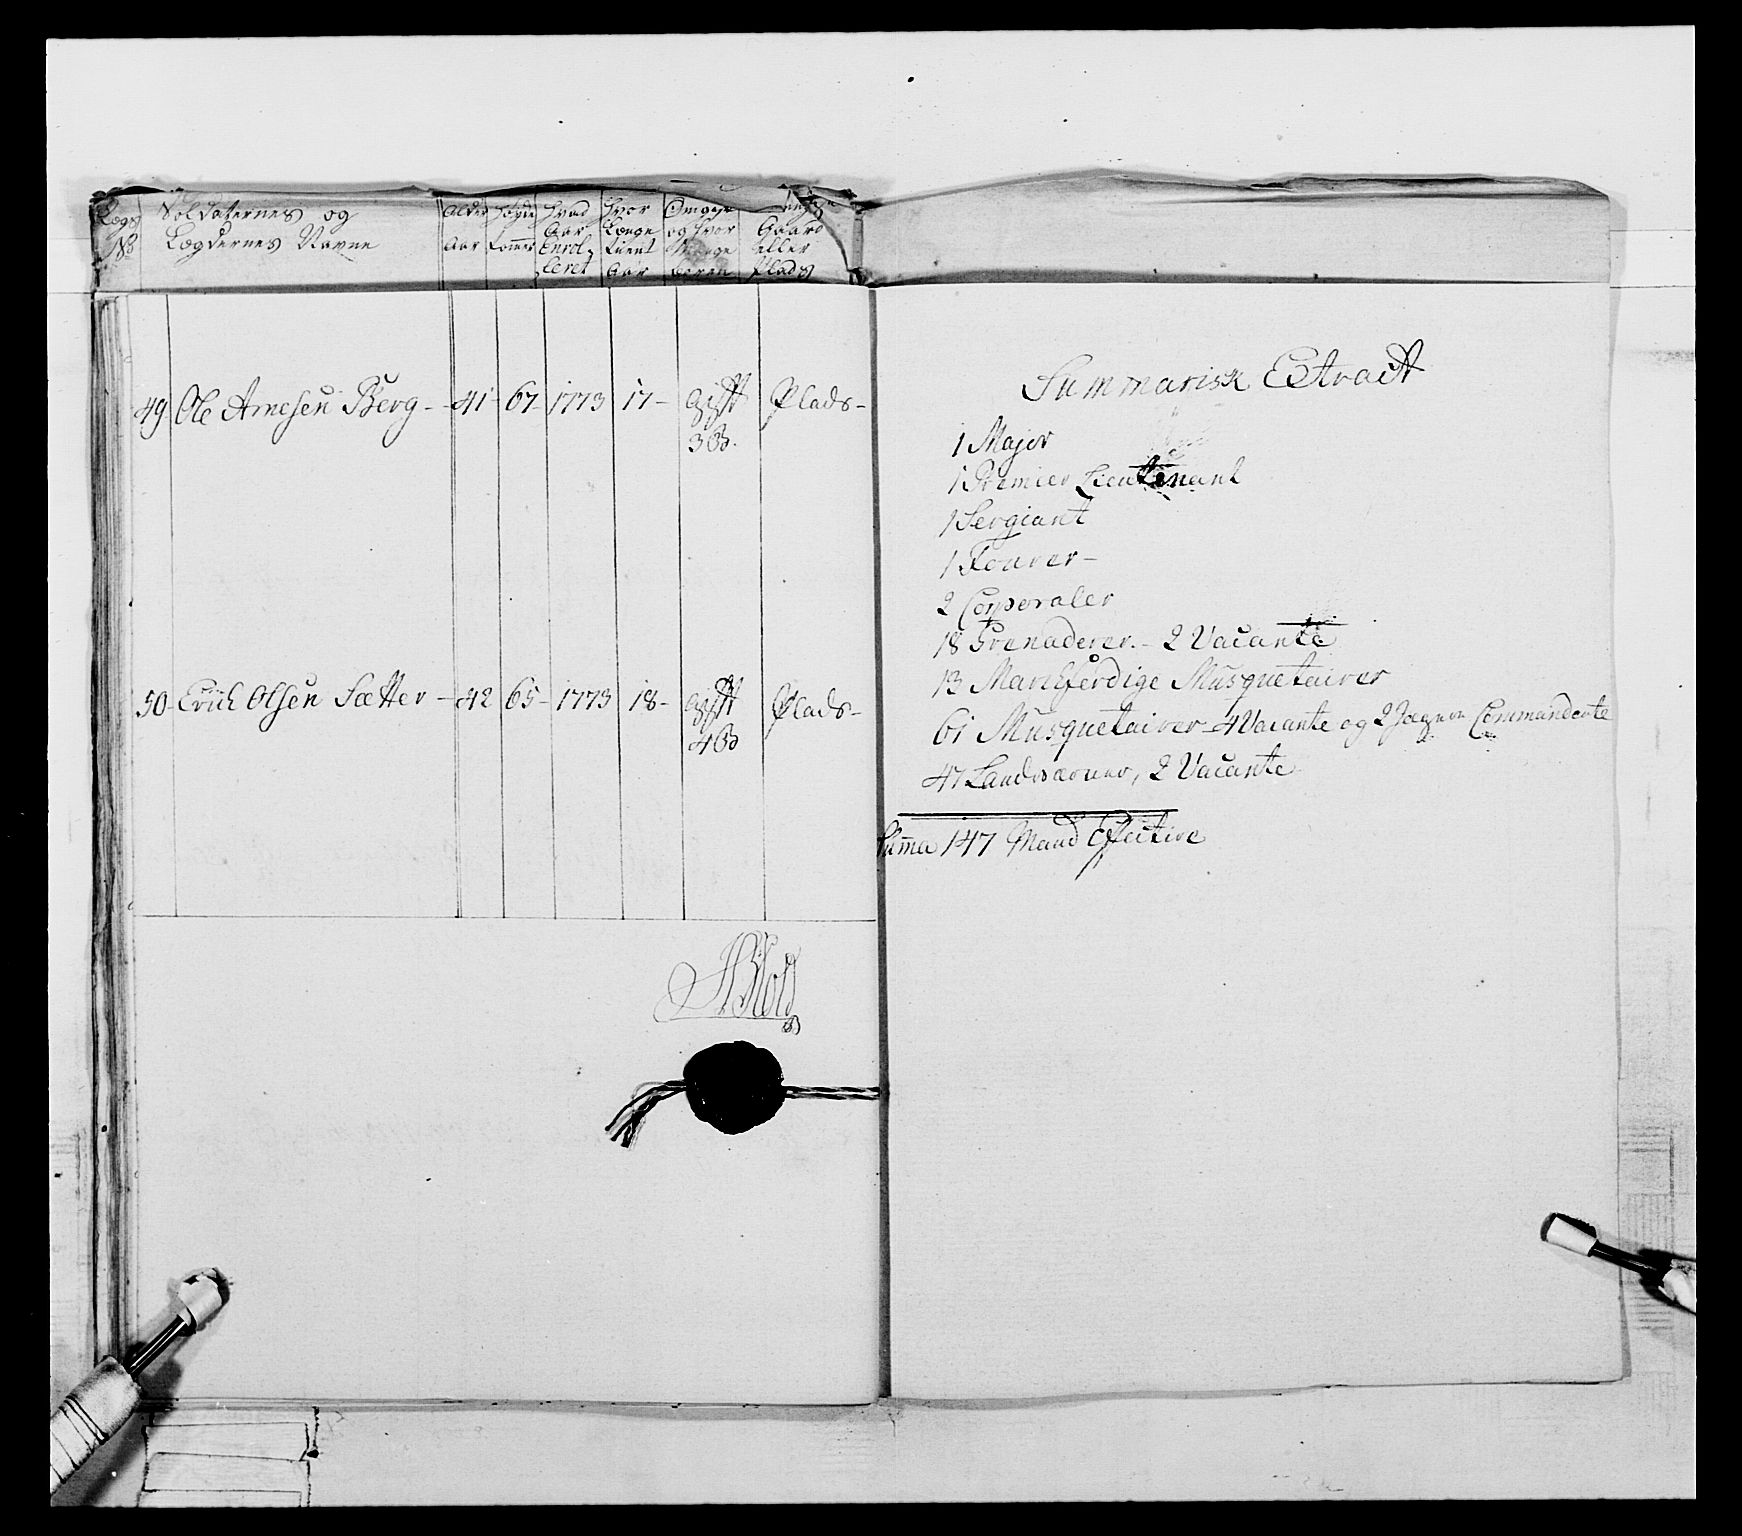 Lægs No
Soldaternes og Lægdernes Navne
Alder Aar
Høyde Tommer
Hvad Aar Enrolleret
Hvor Længe tient Aar
og hvor Mange Børen
Gaard eller Plads
49 Ole Arnesen Berg - 41 - 67 - 1773 17 - gift 3 B. Plads -
50 - Erich Olsen Sætter - 42 65 - 1773 18 - gift 4 B Plads -
Summarisk Extract
1 Major
1 Premier Lieutenant
1 Sergiant
1 Fourer -
2 Corporaler
18 Grenaderer. - 2 Vacante
13 Marchferdige Musquetairer
61 Musquetairer - 4 Vacante og 2 Jægere Commanderte
47 Landværner, 2 Vacante
Summa 147 Mand Effective